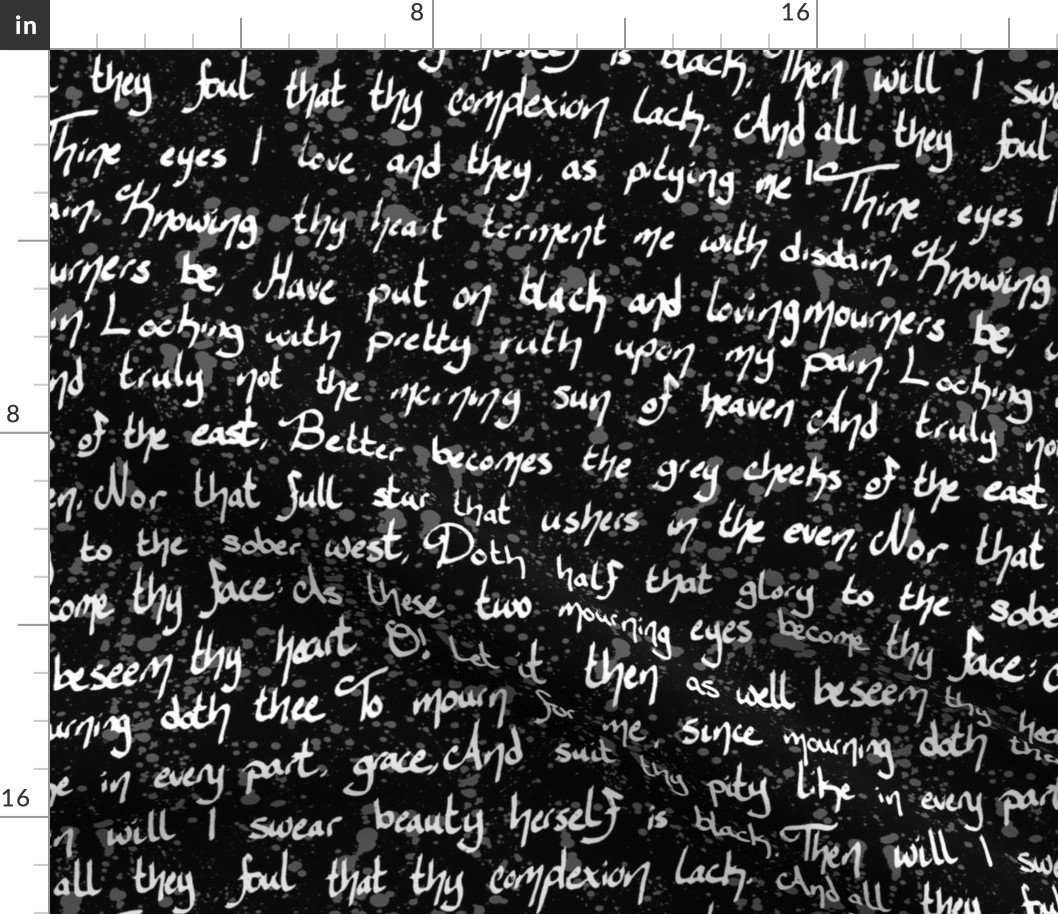 in 8 16
herself is black, Then will I
they foul that thy complexion lack. And all they foul
Thine eyes I love, and they, as pitying me Thine eyes I
Knowing thy heart torment me with disdain, Knowing
mourners be, Have put on black and loving mourners be,
Looking with pretty ruth upon my pain. Looking
truly not the morning sun of heaven And truly
8
of the east, Better becomes the grey cheeks of the east,
Nor that full star that ushers in the even, Nor that
to the sober west, Doth half that glory to the
thy face: As these two mourning eyes become thy face:
beseem thy heart O! let it then as well beseem thy
doth thee To mourn for me, since mourning doth
in every part. grace, And suit thy pity like in every part
16
will I swear beauty herself is black, Then will I
all they foul that thy complexion lack. And all they